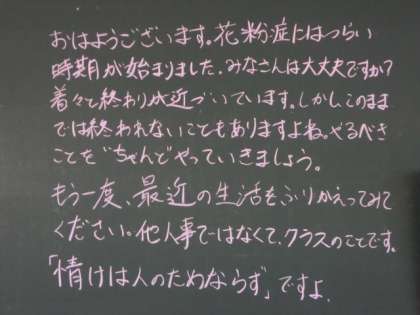 おはようございます。花粉症にはつらい
時期が始まりました。みなさんは大丈夫ですか?
着々と終わりが近づいています。しかしこのまま
では終われないこともありますよね。やるべき
ことを"ちゃんとやっていきましょう。
もう一度、最近の生活をふりかえってみて
ください。他人事ではなくて、クラスのことです。
「情けは人のためならず」ですよ。